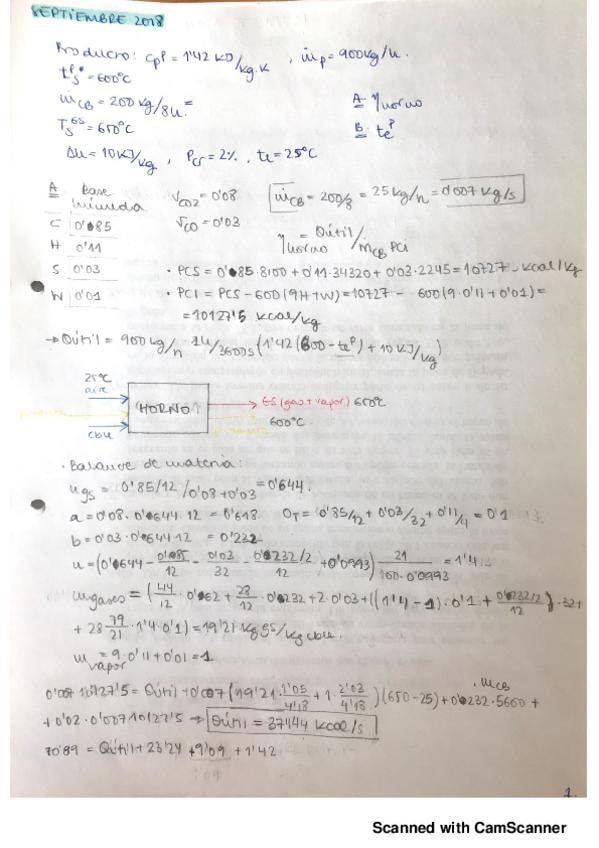 SEPTIEMBRE 2018
Producto: CpP = 1'42 KJ/kg.K , ṁp = 900 kg/h.
tsP = 600ºC
ṁCB = 200 kg/8h. A ηhorno
TsGS = 650ºC B teP
Δh = 10 KJ/kg , Pcr = 2% , te = 25ºC
A Base húmeda VCO2 = 0'08 ṁCB = 200/8 = 25 kg/h = 0'007 kg/s
C 0'85 VCO = 0'03 ηhorno = Qútil/ṁCB PCI
H 0'11
S 0'03 · PCS = 0'85·8100 + 0'11·34320 + 0'03·2245 = 10727 kcal/kg
W 0'01 · PCI = PCS - 600(9H+W) = 10727 - 600(9·0'11+0'01) =
= 10127'5 kcal/kg
→ Qútil = 900 kg/h · 1h/3600s (1'42(600-teP) + 10 KJ/kg)
25ºC
aire
HORNO
GS (gas + vapor) 650ºC
600ºC
producto
cbu
· Balance de materia:
ngs = 0'85/12 / 0'08+0'03 = 0'644.
a = 0'08·0'644·12 = 0'618 OT = 0'85/12 + 0'03/32 + 0'11/4 = 0'1
b = 0'03·0'644·12 = 0'232
n = (0'644 - 0'85/12 - 0'03/32 - 0'232/2/12 + 0'0993) 21/100·0'0993 = 1'4
mgases = (44/12 · 0'62 + 28/12 · 0'232 + 2·0'03 + ((1'4-1)·0'1 + 0'232/2/12)·32 +
+ 28 79/21 · 1'4·0'1) = 19'21 kg GS/kg cbu.
mvapor = 9·0'11+0'01 = 1
0'007·10127'5 = Qútil + 0'007(19'21·1'05/4'18 + 1·2'03/4'18)(650-25) + 0'232·5600 · ṁCB +
+ 0'02·0'007·10127'5 → Qútil = 37'144 kcal/s
70'89 = Qútil + 23'24 + 9'09 + 1'42
1.
Scanned with CamScanner